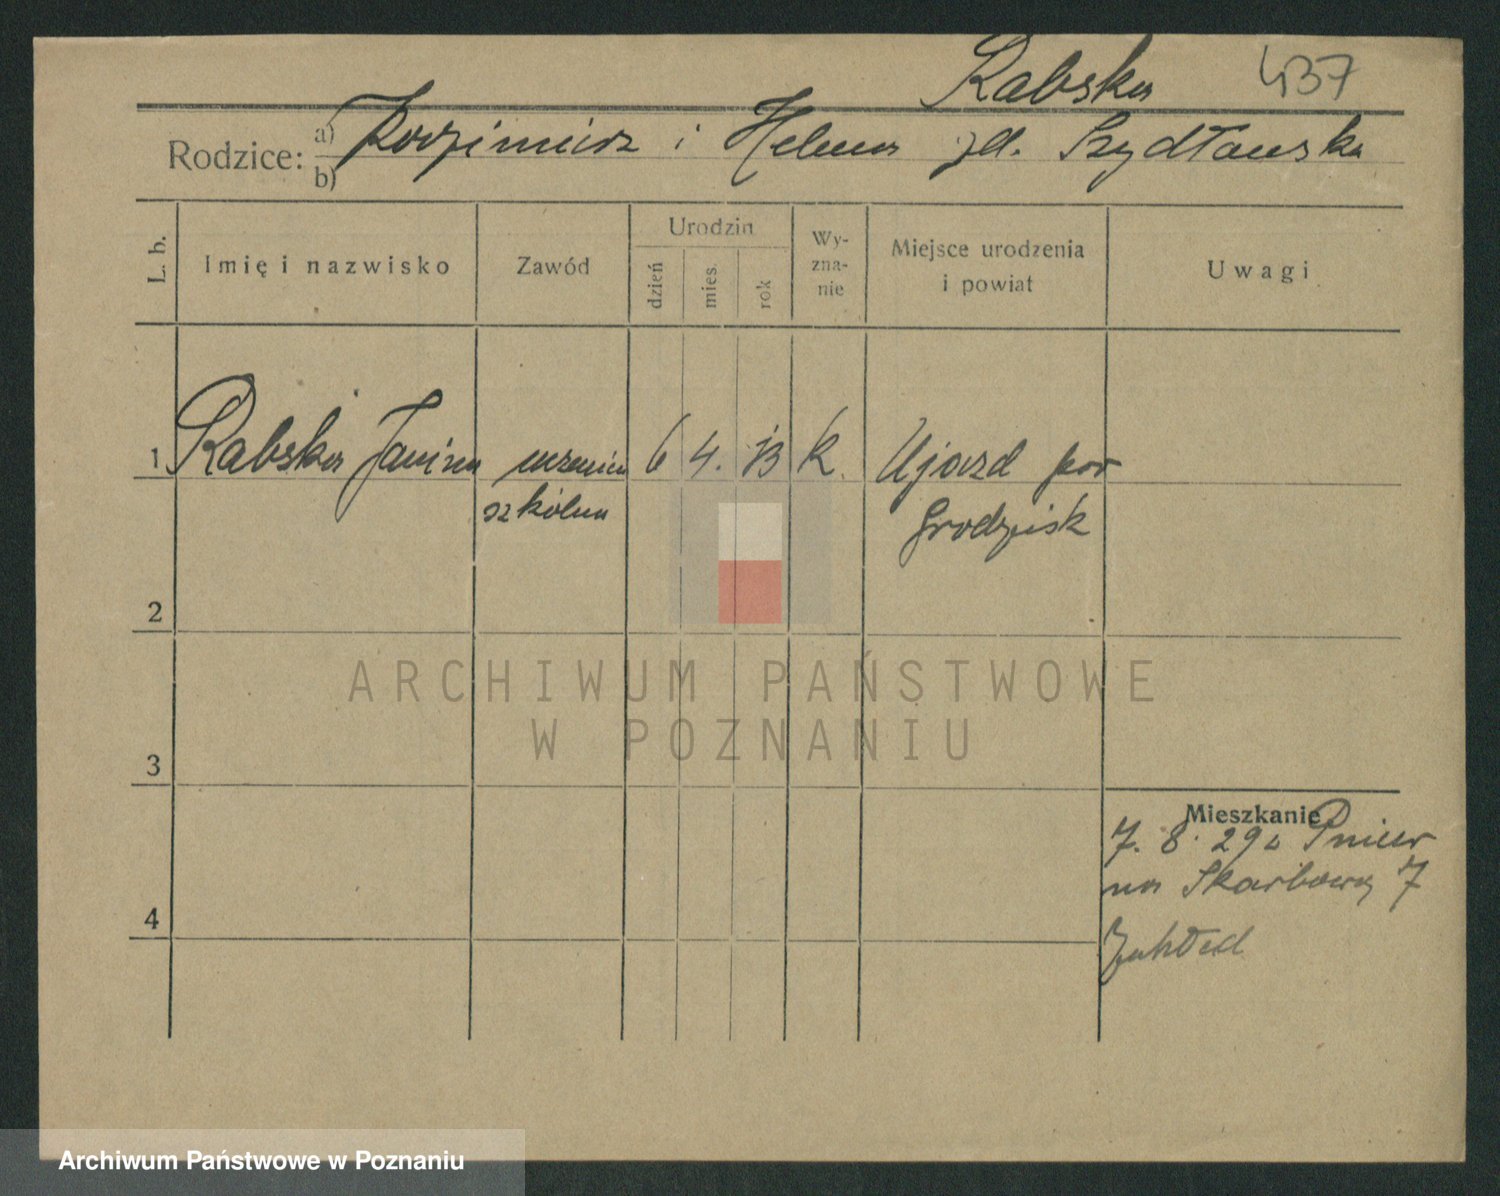 Rabska 437
Rodzice: a) Kazimierz i Helena zd. Szydłowska
b)
L. b. Imię i nazwisko Zawód Urodzin dzień mies. rok Wy-zna-nie Miejsce urodzenia i powiat Uwagi
1 Rabska Janina uczenica 6 4. 13 k. Ujazd pow
szkolna Grodzisk
2
ARCHIWUM PAŃSTWOWE
W POZNANIU
3
Mieszkanie
7. 8. 29 z Pniew
na Skarbową 7
4
Zakład
Archiwum Państwowe w Poznaniu